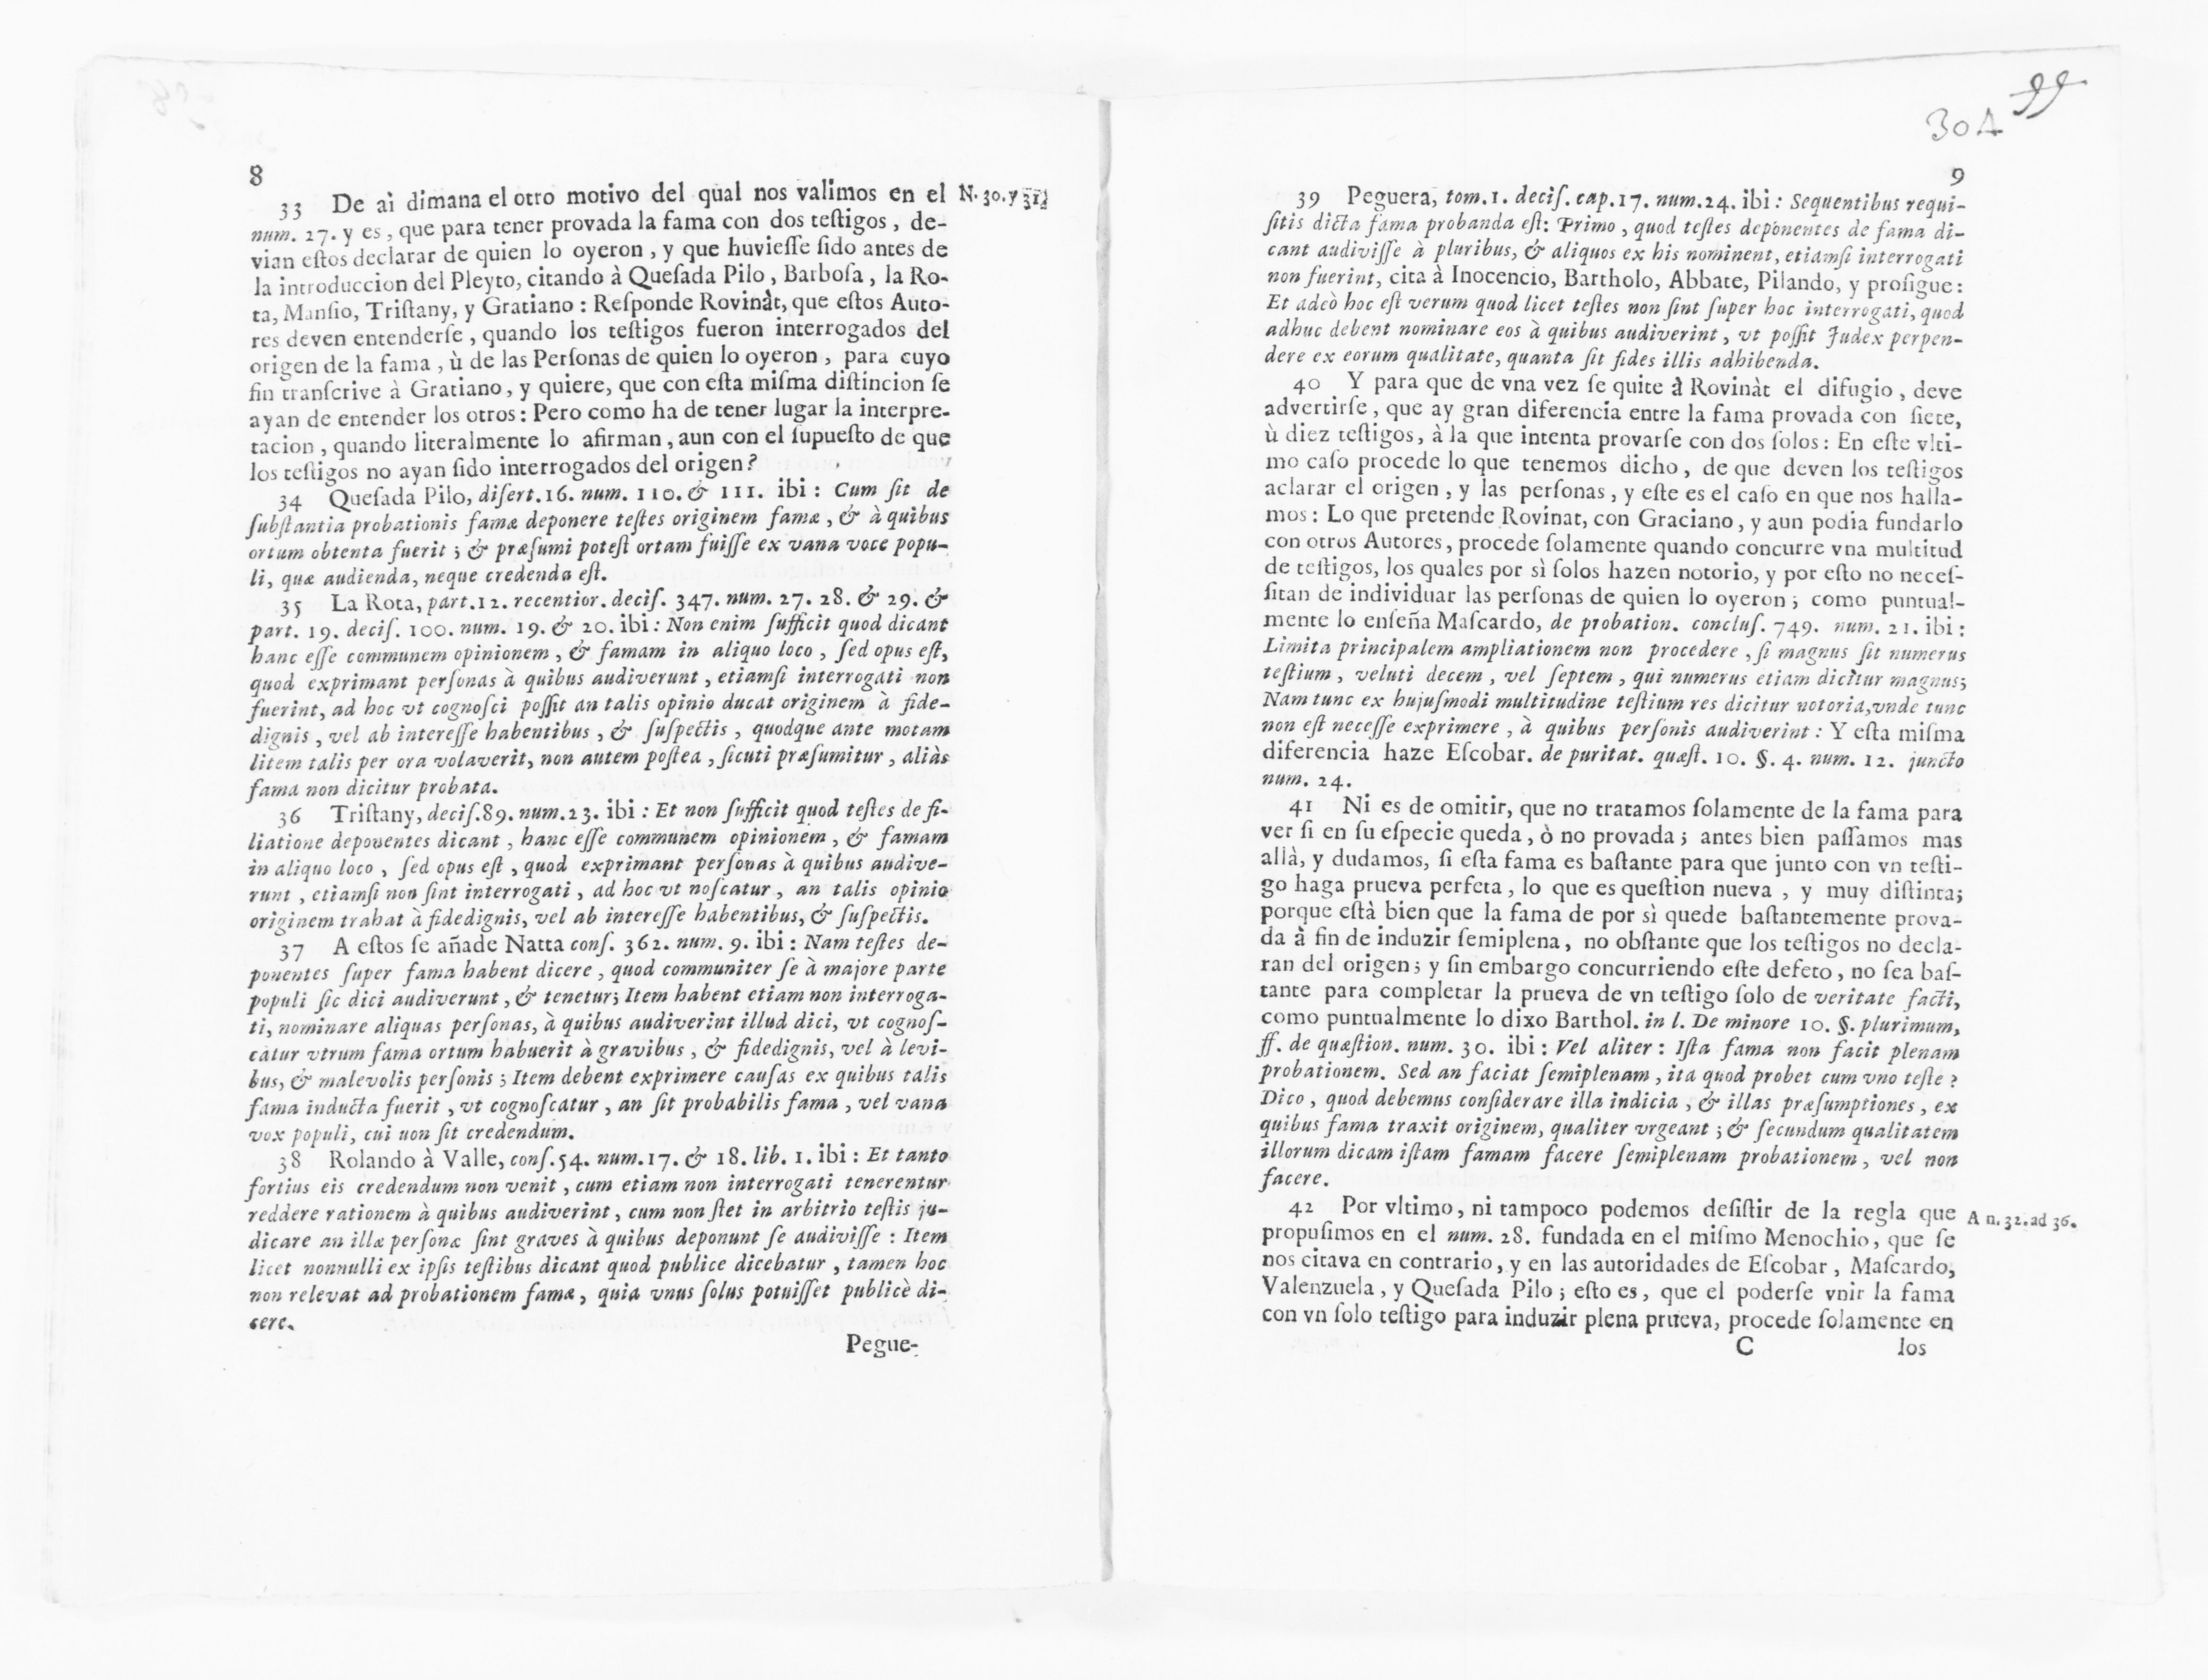 8
33 De aì dimana el otro motivo del qual nos valimos en el N. 30. y 31.
num. 27. y es, que para tener provada la fama con dos teſtigos, de-
vian eſtos declarar de quien lo oyeron, y que huvieſſe ſido antes de
la introduccion del Pleyto, citando à Queſada Pilo, Barboſa, la Ro-
ta, Manſio, Triſtany, y Gratiano: Reſponde Rovinàt, que eſtos Auto-
res deven entenderſe, quando los teſtigos fueron interrogados del
origen de la fama, ù de las Perſonas de quien lo oyeron, para cuyo
fin tranſcrive à Gratiano, y quiere, que con eſta miſma diſtincion ſe
ayan de entender los otros: Pero como ha de tener lugar la interpre-
tacion, quando literalmente lo afirman, aun con el ſupueſto de que
los teſtigos no ayan ſido interrogados del origen?
34 Queſada Pilo, diſert. 16. num. 110. & 111. ibi: Cum ſit de
ſubſtantia probationis famæ deponere teſtes originem famæ, & à quibus
ortum obtenta fuerit; & præſumi poteſt ortam fuiſſe ex vana voce popu-
li, quæ audienda, neque credenda eſt.
35 La Rota, part. 12. recentior. deciſ. 347. num. 27. 28. & 29. &
part. 19. deciſ. 100. num. 19. & 20. ibi: Non enim ſufficit quod dicant
hanc eſſe communem opinionem, & famam in aliquo loco, ſed opus eſt,
quod exprimant perſonas à quibus audiverunt, etiamſi interrogati non
fuerint, ad hoc vt cognoſci poſſit an talis opinio ducat originem à fide-
dignis, vel ab intereſſe habentibus, & ſuſpectis, quodque ante motam
litem talis per ora volaverit, non autem poſtea, ſicuti præſumitur, aliàs
fama non dicitur probata.
36 Triſtany, deciſ. 89. num. 23. ibi: Et non ſufficit quod teſtes de fi-
liatione deponentes dicant, hanc eſſe communem opinionem, & famam
in aliquo loco, ſed opus eſt, quod exprimant perſonas à quibus audive-
runt, etiamſi non ſint interrogati, ad hoc vt noſcatur, an talis opinio
originem trahat à fidedignis, vel ab intereſſe habentibus, & ſuſpectis.
37 A eſtos ſe añade Natta conſ. 362. num. 9. ibi: Nam teſtes de-
ponentes ſuper fama habent dicere, quod communiter ſe à majore parte
populi ſic dici audiverunt, & tenetur; Item habent etiam non interroga-
ti, nominare aliquas perſonas, à quibus audiverint illud dici, vt cognoſ-
catur vtrum fama ortum habuerit à gravibus, & fidedignis, vel à levi-
bus, & malevolis perſonis; Item debent exprimere cauſas ex quibus talis
fama inducta fuerit, vt cognoſcatur, an ſit probabilis fama, vel vana
vox populi, cui uon ſit credendum.
38 Rolando à Valle, conſ. 54. num. 17. & 18. lib. 1. ibi: Et tanto
fortius eis credendum non venit, cum etiam non interrogati tenerentur
reddere rationem à quibus audiverint, cum non ſtet in arbitrio teſtis ju-
dicare an illæ perſonæ ſint graves à quibus deponunt ſe audiviſſe: Item
licet nonnulli ex ipſis teſtibus dicant quod publice dicebatur, tamen hoc
non relevat ad probationem famæ, quia vnus ſolus potuiſſet publicè di-
cere.
Pegue-
30A 99
9
39 Peguera, tom. 1. deciſ. cap. 17. num. 24. ibi: Sequentibus requi-
ſitis dicta fama probanda eſt: Primo, quod teſtes deponentes de fama di-
cant audiviſſe à pluribus, & aliquos ex his nominent, etiamſi interrogati
non fuerint, cita à Inocencio, Bartholo, Abbate, Pilando, y proſigue:
Et adeò hoc eſt verum quod licet teſtes non ſint ſuper hoc interrogati, quod
adhuc debent nominare eos à quibus audiverint, vt poſſit Judex perpen-
dere ex eorum qualitate, quanta ſit fides illis adhibenda.
40 Y para que de vna vez ſe quite à Rovinàt el difugio, deve
advertirſe, que ay gran diferencia entre la fama provada con ſiete,
ù diez teſtigos, à la que intenta provarſe con dos ſolos: En eſte vlti-
mo caſo procede lo que tenemos dicho, de que deven los teſtigos
aclarar el origen, y las perſonas, y eſte es el caſo en que nos halla-
mos: Lo que pretende Rovinat, con Graciano, y aun podia fundarlo
con otros Autores, procede ſolamente quando concurre vna multitud
de teſtigos, los quales por sì ſolos hazen notorio, y por eſto no neceſ-
ſitan de individuar las perſonas de quien lo oyeron; como puntual-
mente lo enſeña Maſcardo, de probation. concluſ. 749. num. 21. ibi:
Limita principalem ampliationem non procedere, ſi magnus ſit numerus
teſtium, veluti decem, vel ſeptem, qui numerus etiam dicitur magnus;
Nam tunc ex hujuſmodi multitudine teſtium res dicitur notoria, vnde tunc
non eſt neceſſe exprimere, à quibus perſonis audiverint: Y eſta miſma
diferencia haze Eſcobar. de puritat. quæſt. 10. §. 4. num. 12. juncto
num. 24.
41 Ni es de omitir, que no tratamos ſolamente de la fama para
ver ſi en ſu eſpecie queda, ò no provada; antes bien paſſamos mas
allà, y dudamos, ſi eſta fama es baſtante para que junto con vn teſti-
go haga prueva perfeta, lo que es queſtion nueva, y muy diſtinta;
porque eſtà bien que la fama de por sì quede baſtantemente prova-
da à fin de induzir ſemiplena, no obſtante que los teſtigos no decla-
ran del origen; y ſin embargo concurriendo eſte defeto, no ſea baſ-
tante para completar la prueva de vn teſtigo ſolo de veritate facti,
como puntualmente lo dixo Barthol. in l. De minore 10. §. plurimum,
ff. de quæſtion. num. 30. ibi: Vel aliter: Iſta fama non facit plenam
probationem. Sed an faciat ſemiplenam, ita quod probet cum vno teſte?
Dico, quod debemus conſiderare illa indicia, & illas præſumptiones, ex
quibus fama traxit originem, qualiter vrgeant; & ſecundum qualitatem
illorum dicam iſtam famam facere ſemiplenam probationem, vel non
facere.
42 Por vltimo, ni tampoco podemos deſiſtir de la regla que A n. 32. ad 36.
propuſimos en el num. 28. fundada en el miſmo Menochio, que ſe
nos citava en contrario, y en las autoridades de Eſcobar, Maſcardo,
Valenzuela, y Queſada Pilo; eſto es, que el poderſe vnir la fama
con vn ſolo teſtigo para induzir plena prueva, procede ſolamente en
C los